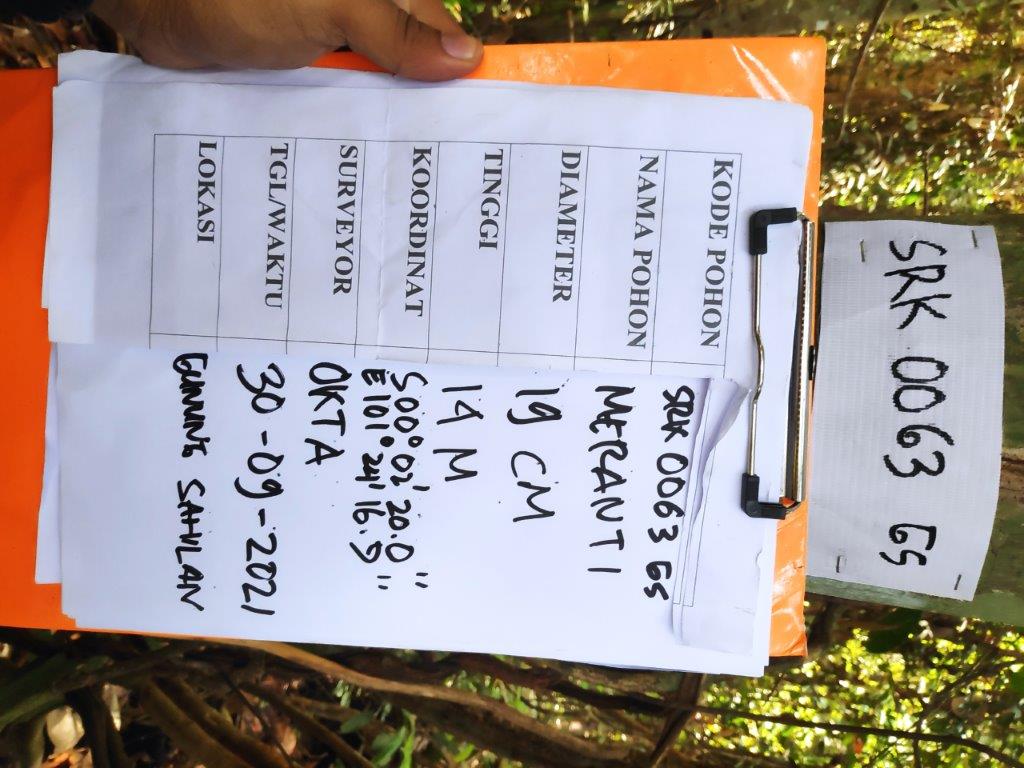 SRK 0063 GS
KODE POHON SRK 0063 GS
NAMA POHON MERANTI
DIAMETER 19 CM
TINGGI 14 M
KOORDINAT S00° 02' 20.0"
E101° 24' 16.9"
SURVEYOR OKTA
TGL/WAKTU 30-09-2021
LOKASI GUNUNG SAHILAN